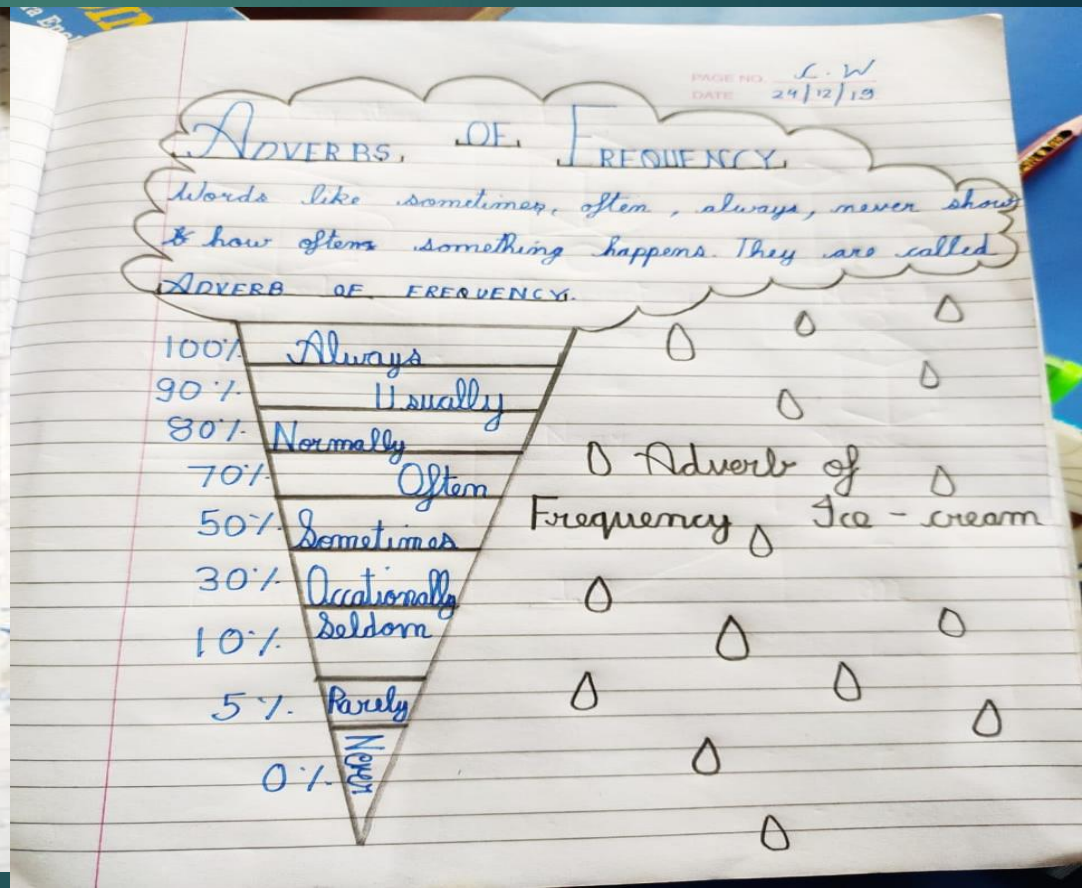 PAGE NO. C.W
DATE 24/12/19
ADVERBS OF FREQUENCY
Words like sometimes, often, always, never shows
how often something happens. They are called
ADVERB OF FREQUENCY.
100% Always
90% Usually
80% Normally
70% Often
50% Sometimes
30% Occationally
10% Seldom
5% Rarely
0% Never
Adverb of
Frequency Ice-cream